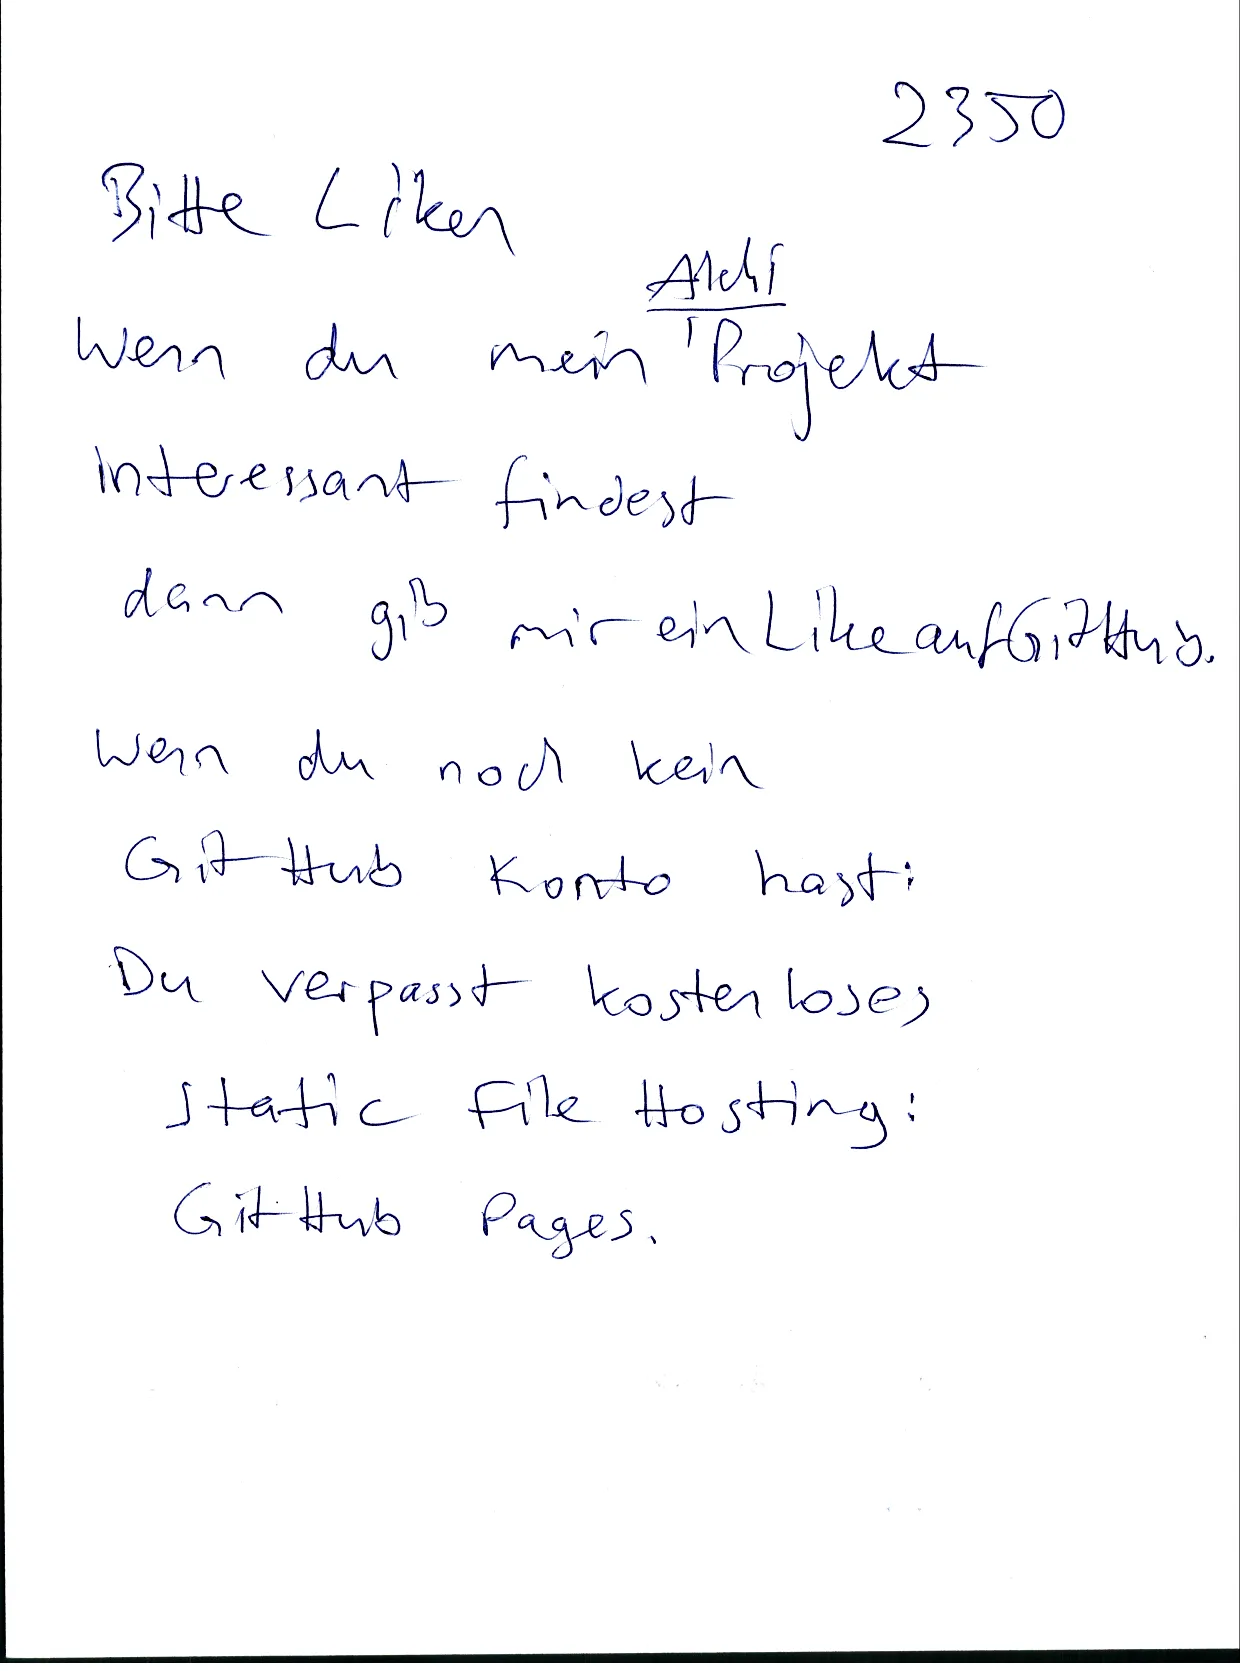 2350
Bitte Liken
Wenn du mein Projekt
interessant findest
dann gib mir ein Like auf GitHub.
Wenn du noch kein
GitHub Konto hast:
Du verpasst kostenloses
Static File Hosting:
GitHub Pages.